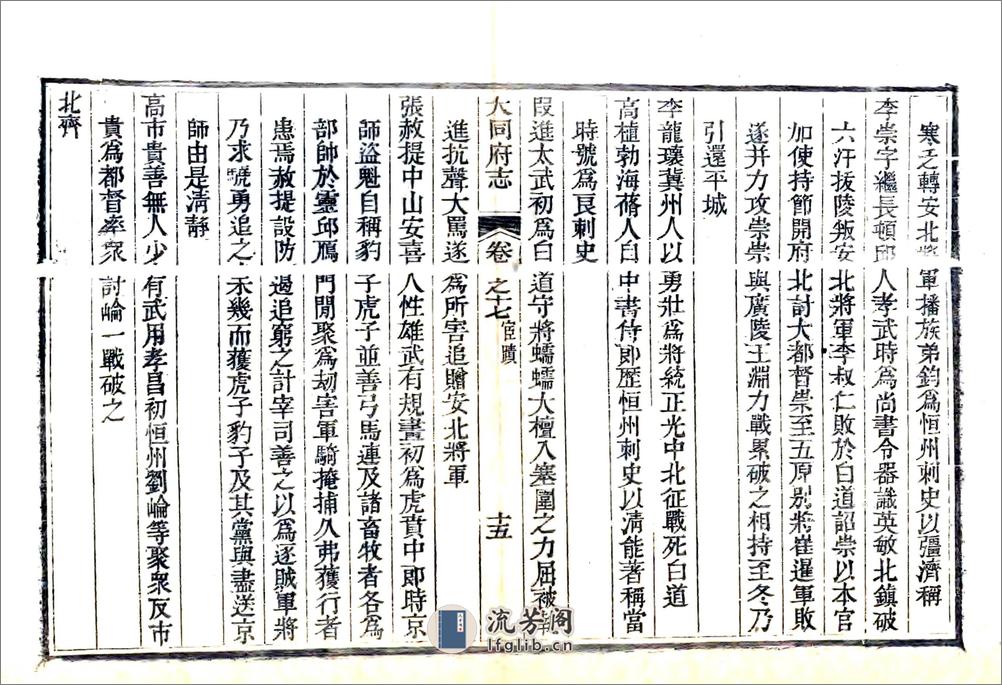 寒乏轉安北將軍播族弟鈞爲恒州刺史以彊濟稱
李崇字繼長頓邱人孝武時爲尚書令器識英敏北鎮破
六汗拔陵叛安北將軍李叔仁敗於白道詔崇以本官
加使持節開府北討大都督崇至五原别將崔暹軍敗
遂并力攻崇崇與廣陵王淵力戰累破之相持至冬乃
引還平城
李龍瓌冀州人以勇壯爲將統正光中北征戰死白道
高植勃海蓨人自中書侍郎歷恒州刺史以清能著稱當
時號爲良刺史
段進太武初爲白道守將蠕蠕大檀入塞圍之力屈被執
大同府志 卷之十七 宦蹟 十五
進抗聲大罵遂爲所害追贈安北將軍
張赦提中山安喜人性雄武有規畫初爲虎賁中郎時京
師盜魁自稱豹子虎子並善弓馬連及諸畜牧者各爲
部帥於靈邱鴈門閒聚爲劫害軍騎掩捕久弗獲行者
患焉赦提設防遏追窮之計宰司善之以爲逐賊軍將
乃求驍勇追之未幾而獲虎子豹子及其黨與盡送京
師由是清靜
高市貴善無人少有武用孝昌初恒州劉崘等聚衆反市
貴爲都督率衆討崘一戰破之
北齊
流芳閣
lfglib.cn